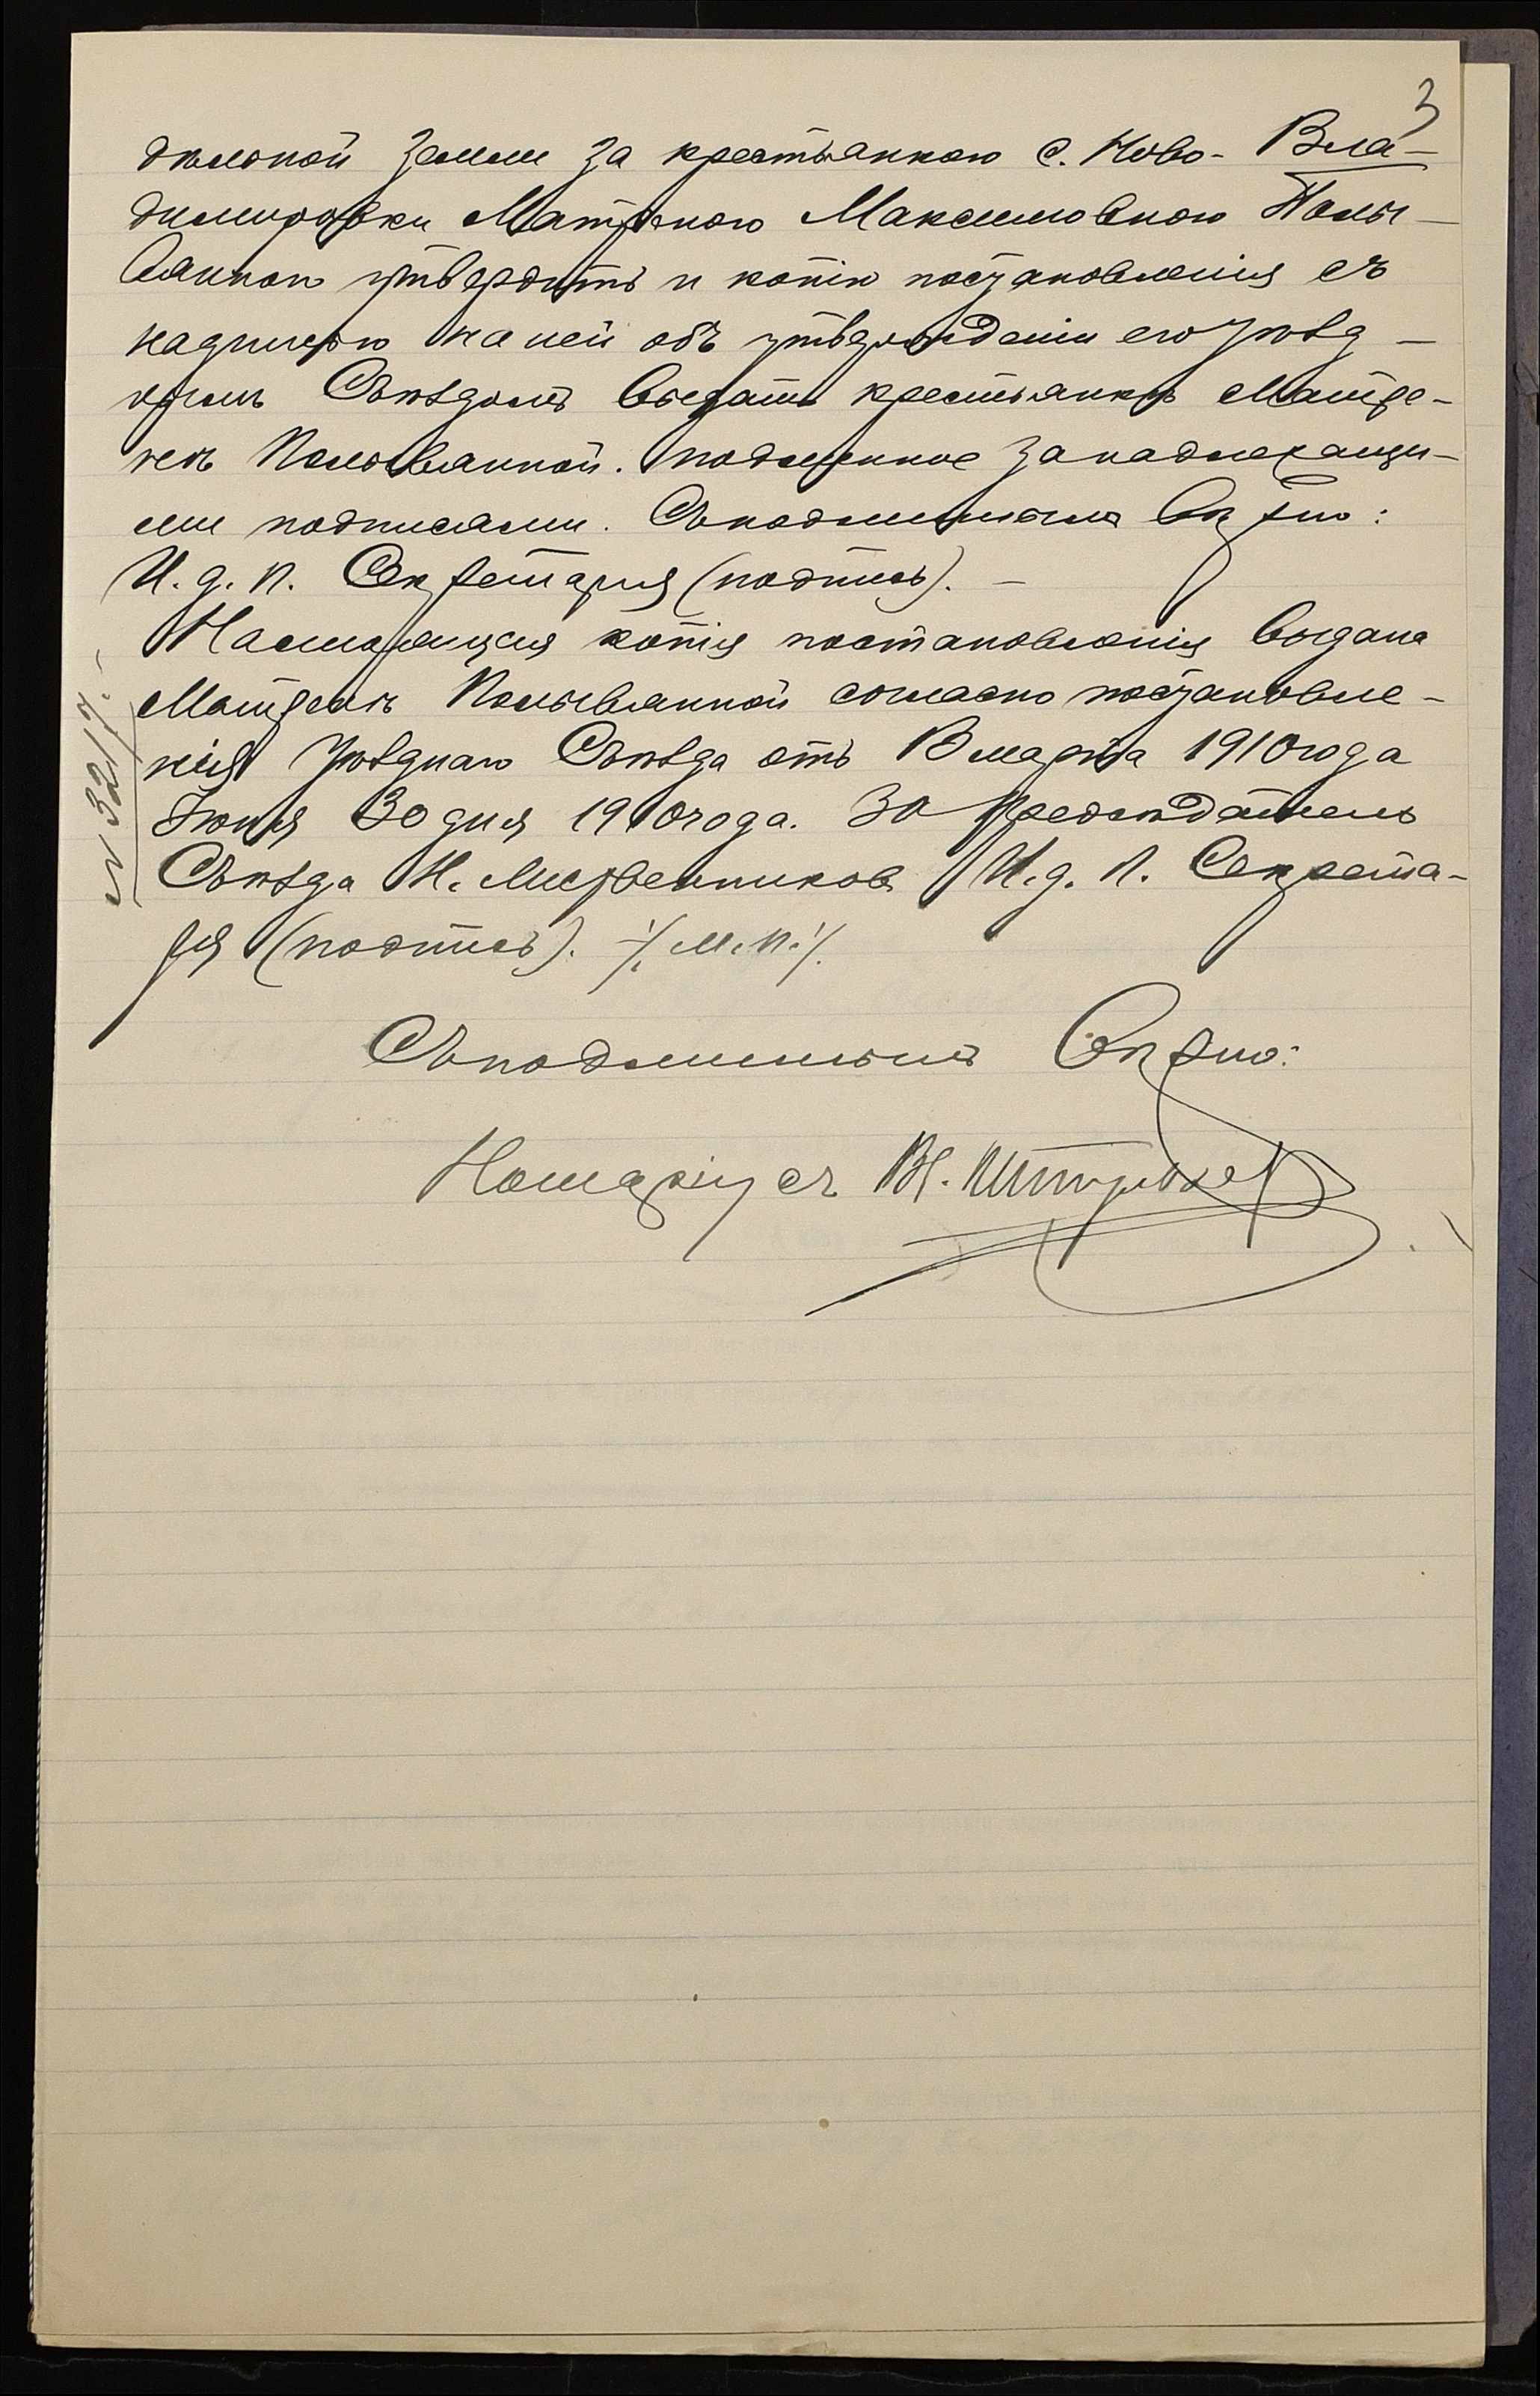 3
дѣльной земли за крестьянкою с. Ново-Вла-
димировки Матреною Максимовною Полы-
вянною утвердить и копію постановленія съ
надписью на ней объ утвержденіи его Уѣзд-
нымъ Съѣздомъ выдать крестьянкѣ Матре-
нѣ Полывянной. Подлинное за надлежащи-
ми подписями. Съ подлиннымъ вѣрно:
И. д. п. Секретаря (подпись). –
Настоящая копія постановленія выдана
Матренѣ Полывянной согласно постановле-
нія Уѣзднаго Съѣзда отъ марта 1910 года
Іюня 30 дня 1910 года. За Предсѣдатель
Съѣзда Н. И. д. п. Секрета-
ря (подпись). /М. П./.
№ 3217.-
Съ подлиннымъ вѣрно:
Нотаріусъ